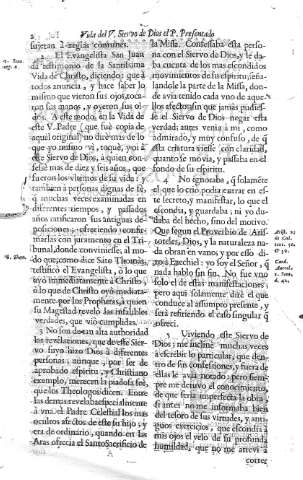 2 Vida del V. Siervo de Dios el P. Presentado
sujetan à reglas comunes.
2 El Evangelista San Juan
dà testimonio de la Santissima
Vida de Christo, diciendo: que à
todos anuncia, y hace saber lo
mismo que vieron sus ojos, toca-
ron sus manos, y oyeron sus oi-
dos. A este modo, en la Vida de
este V. Padre (que fuè copia de
aquel original) no dirè mas de lo
que yo mismo vì, toquè, y oì à
este Siervo de Dios, à quien con-
fessè mas de diez y seis años, que
fueron los ultimos de su vida: y
tambien à personas dignas de fè,
que muchas veces examinadas en
diferentes tiempos, y passados
años ratificaron sus antiguas de-
posiciones: ofreciendo confir-
marlas con juramento en el Tri-
bunal, donde convinesse, al mo-
do que, como dice Sato Thomàs,
testificò el Evangelista, ò lo que
viò immediatamente à Christo,
ò lo que de Christo oyò mediata-
mente por los Prophetas, à quien
su Magestad revelò las infalibles
verdades, que viò cumplidas.
3 No son de otra alta authoridad
las revelaciones, que de este Sier-
vo suyo hizo Dios à diferentes
personas, aunque, por ser de
aprobado espiritu, y Christiano
exemplo, merecen la piadosa feè,
que los Theologos dicen. Entre
las demàs revelaba especialmente
à vna el Padre Celestial los mas
ocultos afectos de este su hijo; y
era de ordinario, quando en las
Aras ofrecia el Santo Sacrificio de
S. Thom.
la Missa. Confessaba esta perso-
na con el Siervo de Dios, y le da-
ba cuenta de los mas escondidos
movimientos de su espiritu, seña-
landole la parte de la Missa, don-
de avia tenido cada vno de aque-
llos efectos, sin que jamàs pudies-
se el Siervo de Dios negar esta
verdad: antes venia à mi, como
admirado, y muy confuso, de q̃
esta criatura viesse con claridad,
quanto se movia, y passaba en el
fondo de su espiritu.
4 No ignoraba, q̃ solamete
el que lo criò podia entrar en es-
te secreto, y manifestar, lo que el
escondia, y guardaba; ni yo du-
daba del hecho, sino del motivo.
Que segun el Proverbio de Aris-
toteles, Dios, y la naturaleza na-
da obran en vano; y por esso di-
xo à Ezechiel: yo soy el Señor, q̃
nada hablo sin fin. No fue vno
solo el de estas manifestaciones;
pero aqui solamente dirè el que
conduce al assumpto presente, y
serà refiriendo el caso singular q̃
ofreci.
5 Viviendo este Siervo de
Dios, me inclinè muchas veces
à escribir lo particular, que den-
tro de sus confessiones, y fuera de
ellas le avia notado; pero siem-
pre me detuvo el conocimiento,
de que seria imperfecta la obra,
si antes no me informaba bien
del tesoro de sus virtudes, y anti-
guos exercicios, que escondiò à
mis ojos el velo de su profunda
humildad, que no me atrevì à
correr